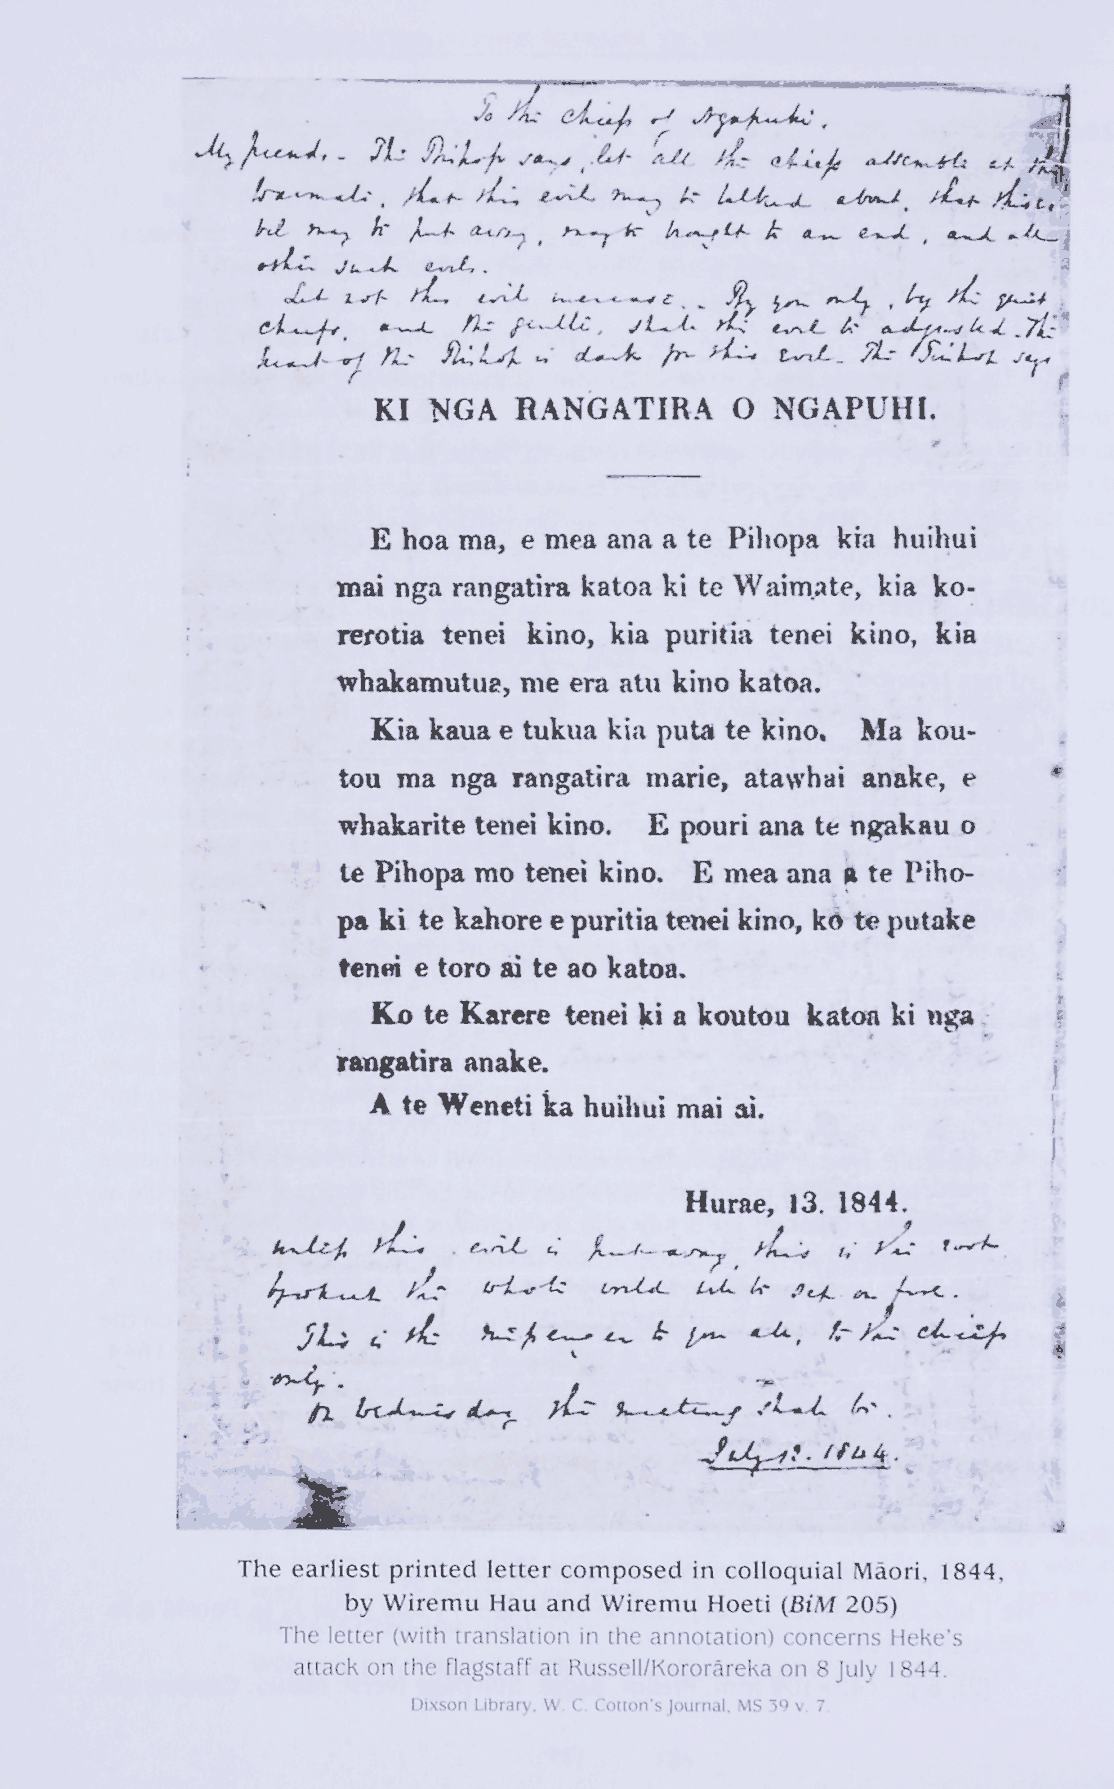 To the chiefs of Ngapuhi.
My friends. - The Bishop says, let all the chiefs assemble at the
Waimate, that this evil may be talked about, that this e-
vil may be put away, may be brought to an end, and all
other such evils.
Let not this evil increase. - By you only, by the quiet
chiefs, and the gentle, shall this evil be adjusted. The
heart of the Bishop is dark for this evil. The Bishop says
KI NGA RANGATIRA O NGAPUHI.
E hoa ma, e mea ana a te Pihopa kia huihui
mai nga rangatira katoa ki te Waimate, kia ko-
rerotia tenei kino, kia puritia tenei kino, kia
whakamutua, me era atu kino katoa.
Kia kaua e tukua kia puta te kino. Ma kou-
tou ma nga rangatira marie, atawhai anake, e
whakarite tenei kino. E pouri ana te ngakau o
te Pihopa mo tenei kino. E mea ana a te Piho-
pa ki te kahore e puritia tenei kino, ko te putake
tenei e toro ai te ao katoa.
Ko te Karere tenei ki a koutou katoa ki nga
rangatira anake.
A te Weneti ka huihui mai ai.
Hurae, 13. 1844.
unless this evil is put away, this is the root
the whole world will be set on fire.
This is the messenger to you all, to the chiefs
only.
On Wednesday the meeting shall be.
July 13. 1844.
The earliest printed letter composed in colloquial Māori, 1844,
by Wiremu Hau and Wiremu Hoeti (BiM 205)
The letter (with translation in the annotation) concerns Heke's
attack on the flagstaff at Russell/Kororāreka on 8 July 1844.
Dixson Library, W. C. Cotton's Journal, MS 39 v. 7.